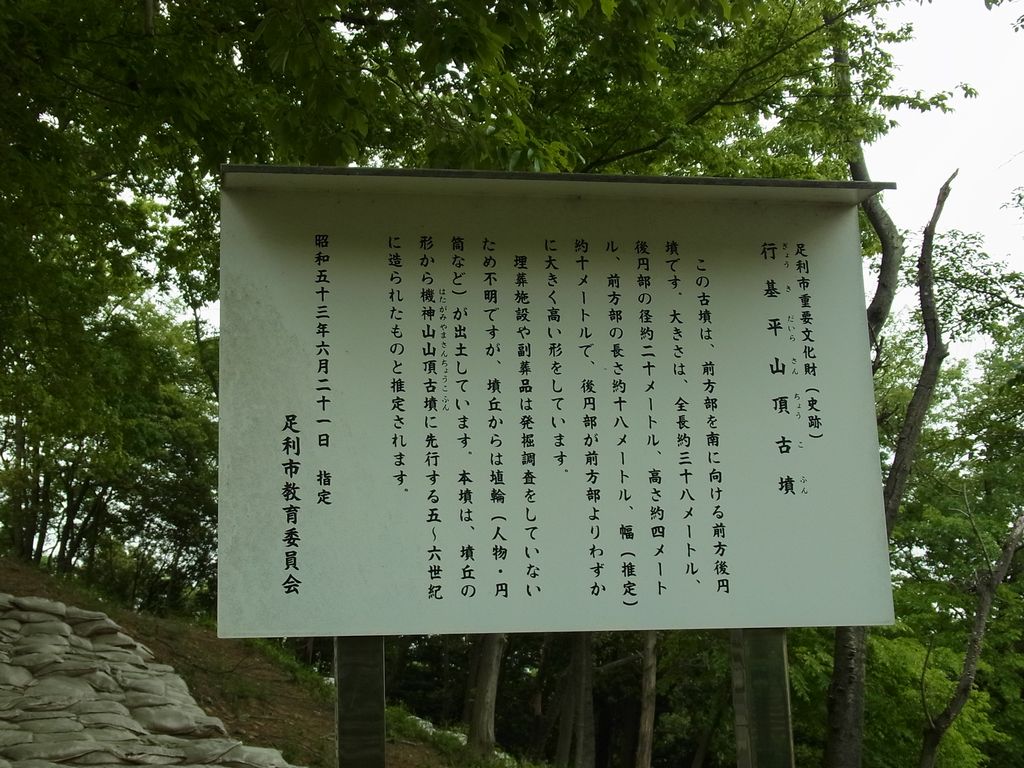 足利市重要文化財（史跡）
行基平山頂古墳
ぎょうきだいらさんちょうこふん
この古墳は、前方部を南に向ける前方後円
墳です。大きさは、全長約三十八メートル、
後円部の径約二十メートル、高さ約四メート
ル、前方部の長さ約十八メートル、幅（推定）
約十メートルで、後円部が前方部よりわずか
に大きく高い形をしています。
埋葬施設や副葬品は発掘調査をしていない
ため不明ですが、墳丘からは埴輪（人物・円
筒など）が出土しています。本墳は、墳丘の
形から機神山山頂古墳に先行する五～六世紀
はたがみやまさんちょうこふん
に造られたものと推定されます。
昭和五十三年六月二十一日 指定
足利市教育委員会